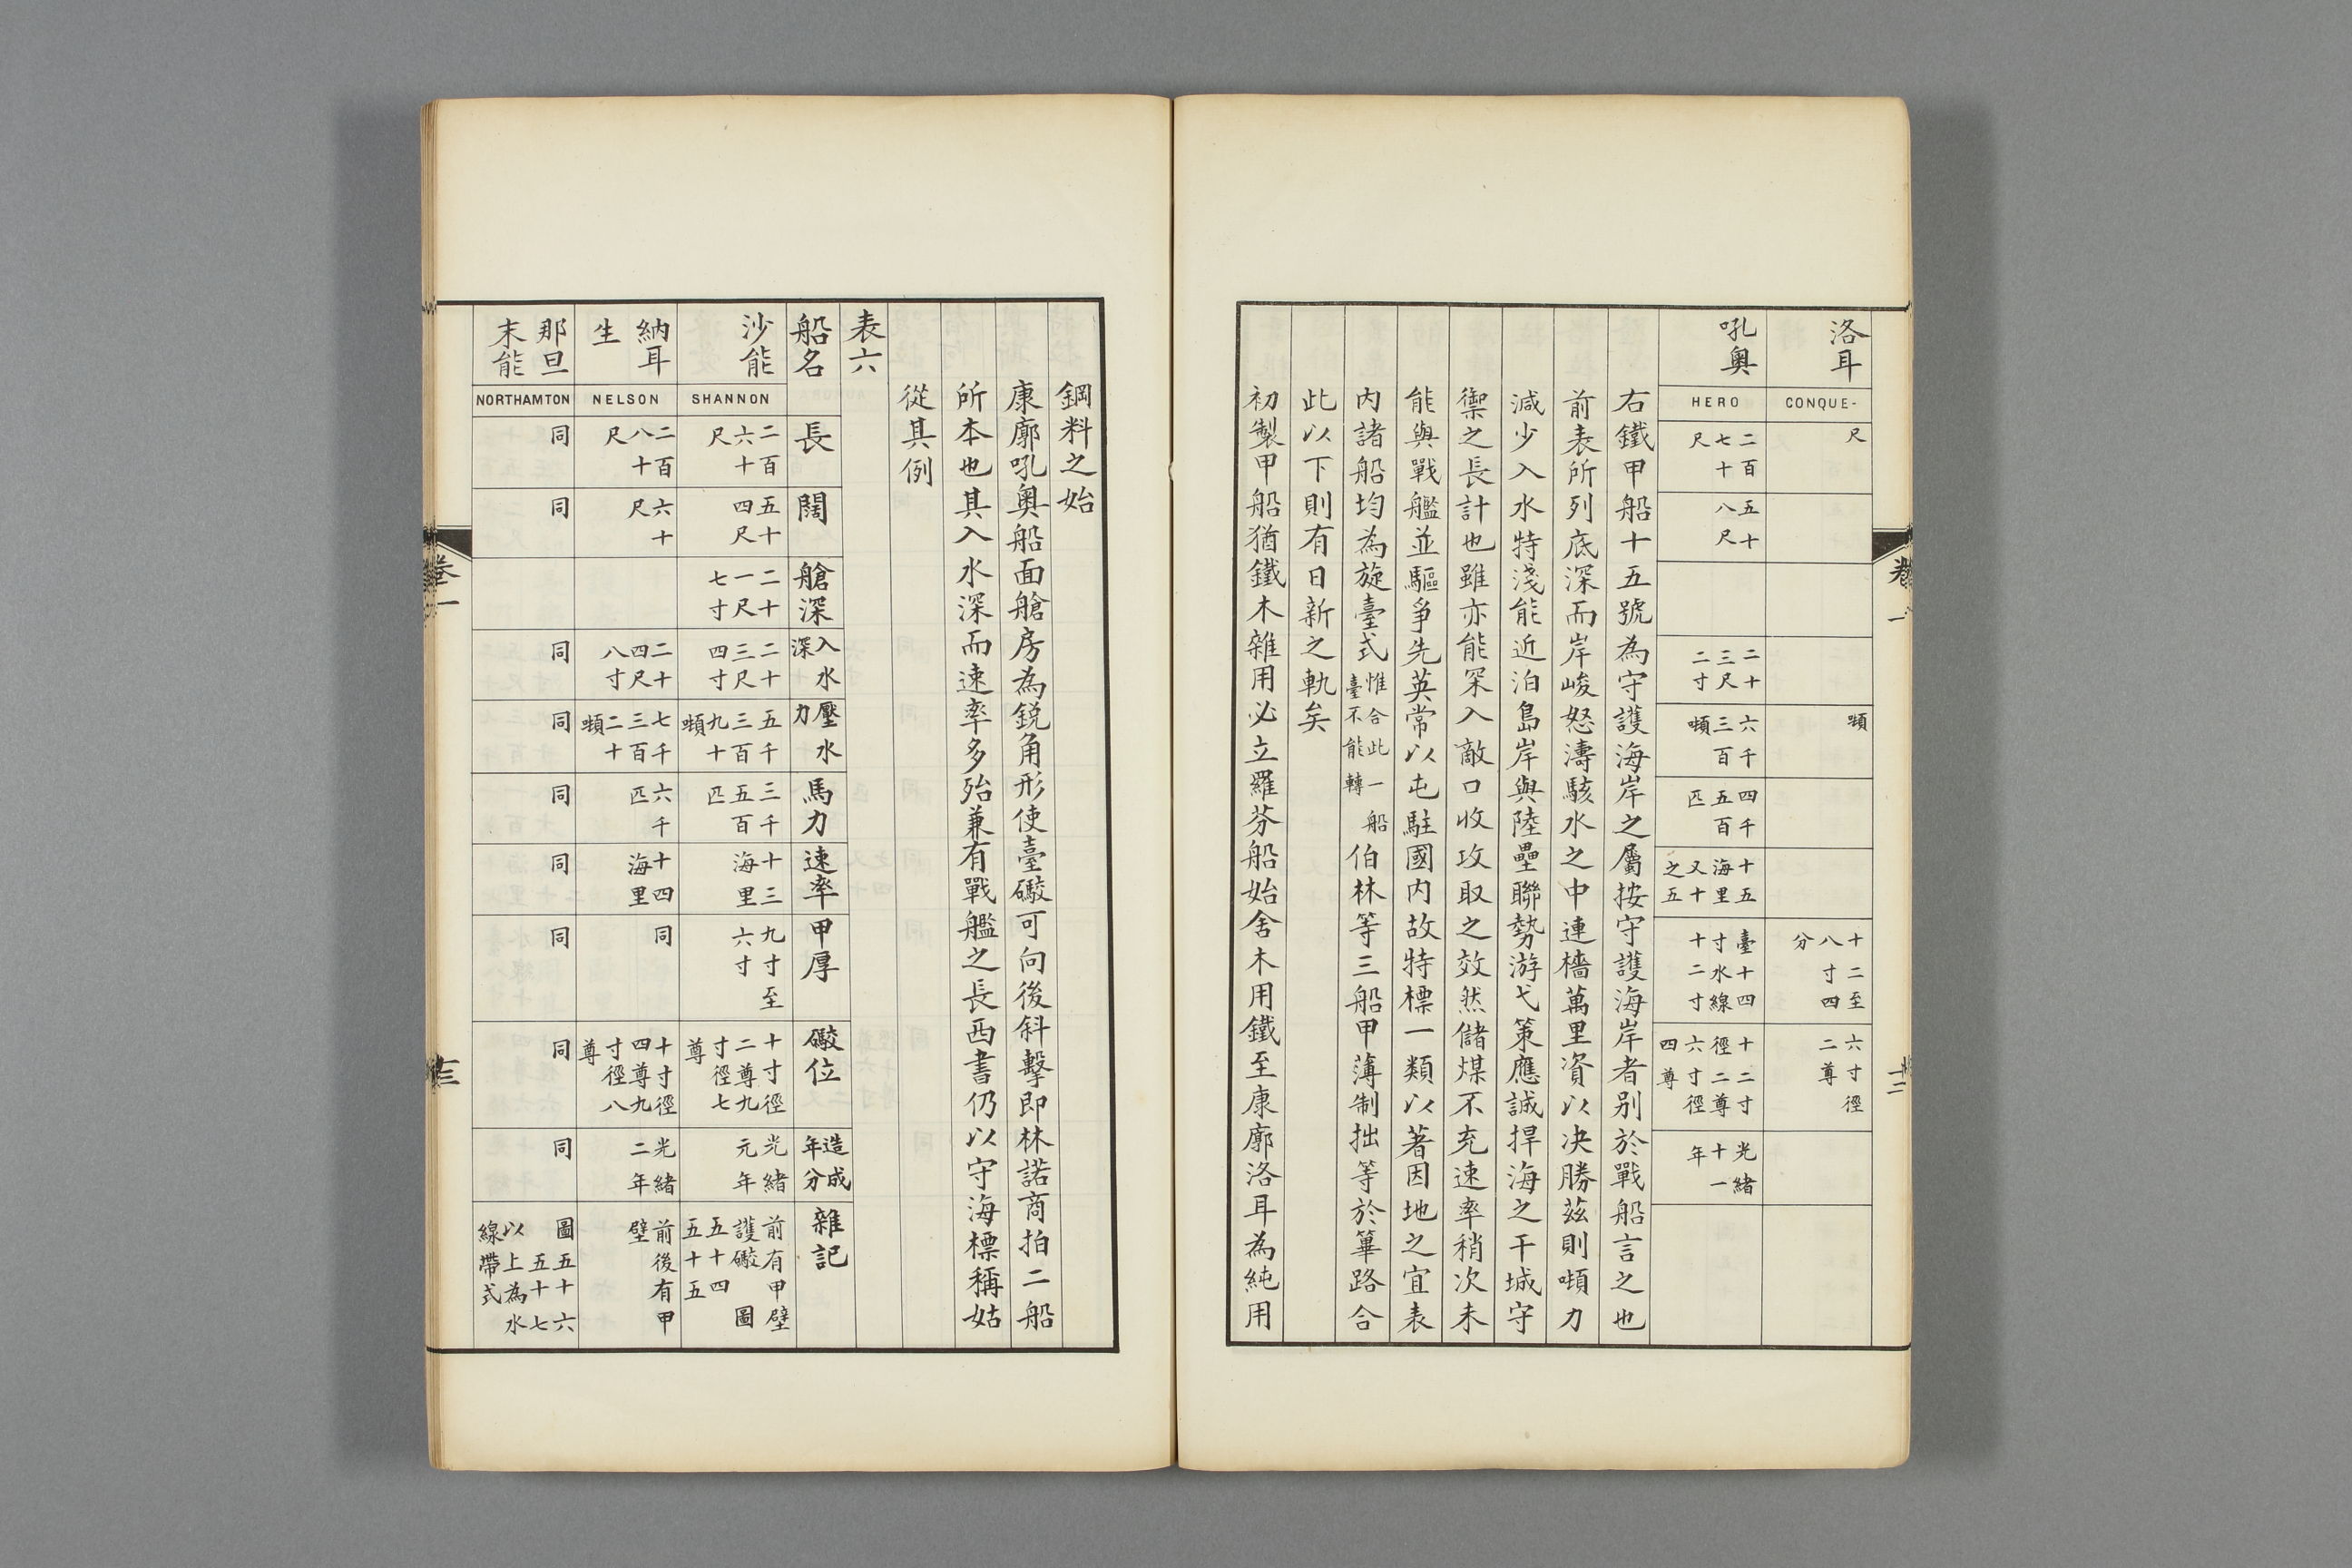 卷一
十二
洛耳
CONQUE-
尺
噸
十二至
八寸四
分
六寸徑
二尊
吼奧
HERO
二百
七十
尺
五十
八尺
二十
三尺
二寸
六千
三百
噸
四千
五百
匹
十五
海里
又十
之五
臺十四
寸水線
十二寸
十二寸
徑二尊
六寸徑
四尊
光緒
十一
年
右鐵甲船十五號為守護海岸之屬按守護海岸者别於戰船言之也
前表所列底深而岸峻怒濤駭水之中連檣萬里資以决勝茲則噸力
減少入水特淺能近泊島岸與陸壘聯勢游弋策應誠捍海之干城守
禦之長計也雖亦能深入敵口收攻取之效然儲煤不充速率稍次未
能與戰艦並驅爭先英常以屯駐國内故特標一類以著因地之宜表
内諸船均為旋臺式惟合此一船臺不能轉伯林等三船甲薄制拙等於篳路合
此以下則有日新之軌矣
初製甲船猶鐵木雜用必立羅芬船始舍木用鐵至康廓洛耳為純用
鋼料之始
康廓吼奧船面艙房為銳角形使臺礮可向後斜擊即林諾商拍二船
所本也其入水深而速率多殆兼有戰艦之長西書仍以守海標稱姑
從其例
表六
船名
長
闊
艙深
入水
深
壓水
力
馬力
速率
甲厚
礮位
造成
年分
雜記
沙能
SHANNON
二百
六十
尺
五十
四尺
二十
一尺
七寸
二十
三尺
四寸
五千
三百
九十
噸
三千
五百
匹
十三
海里
九寸至
六寸
十寸徑
二尊九
寸徑七
尊
光緒
元年
前有甲壁
護礮 圖
五十四
五十五
納耳
生
NELSON
二百
八十
尺
六十
尺
二十
四尺
八寸
七千
三百
二十
噸
六千
匹
十四
海里
同
十寸徑
四尊九
寸徑八
尊
光緒
二年
前後有甲
壁
那旦
末能
NORTHAMTON
同
同
同
同
同
同
同
同
同
圖五十六
五十七
以上為水
線帶式
卷一
十三